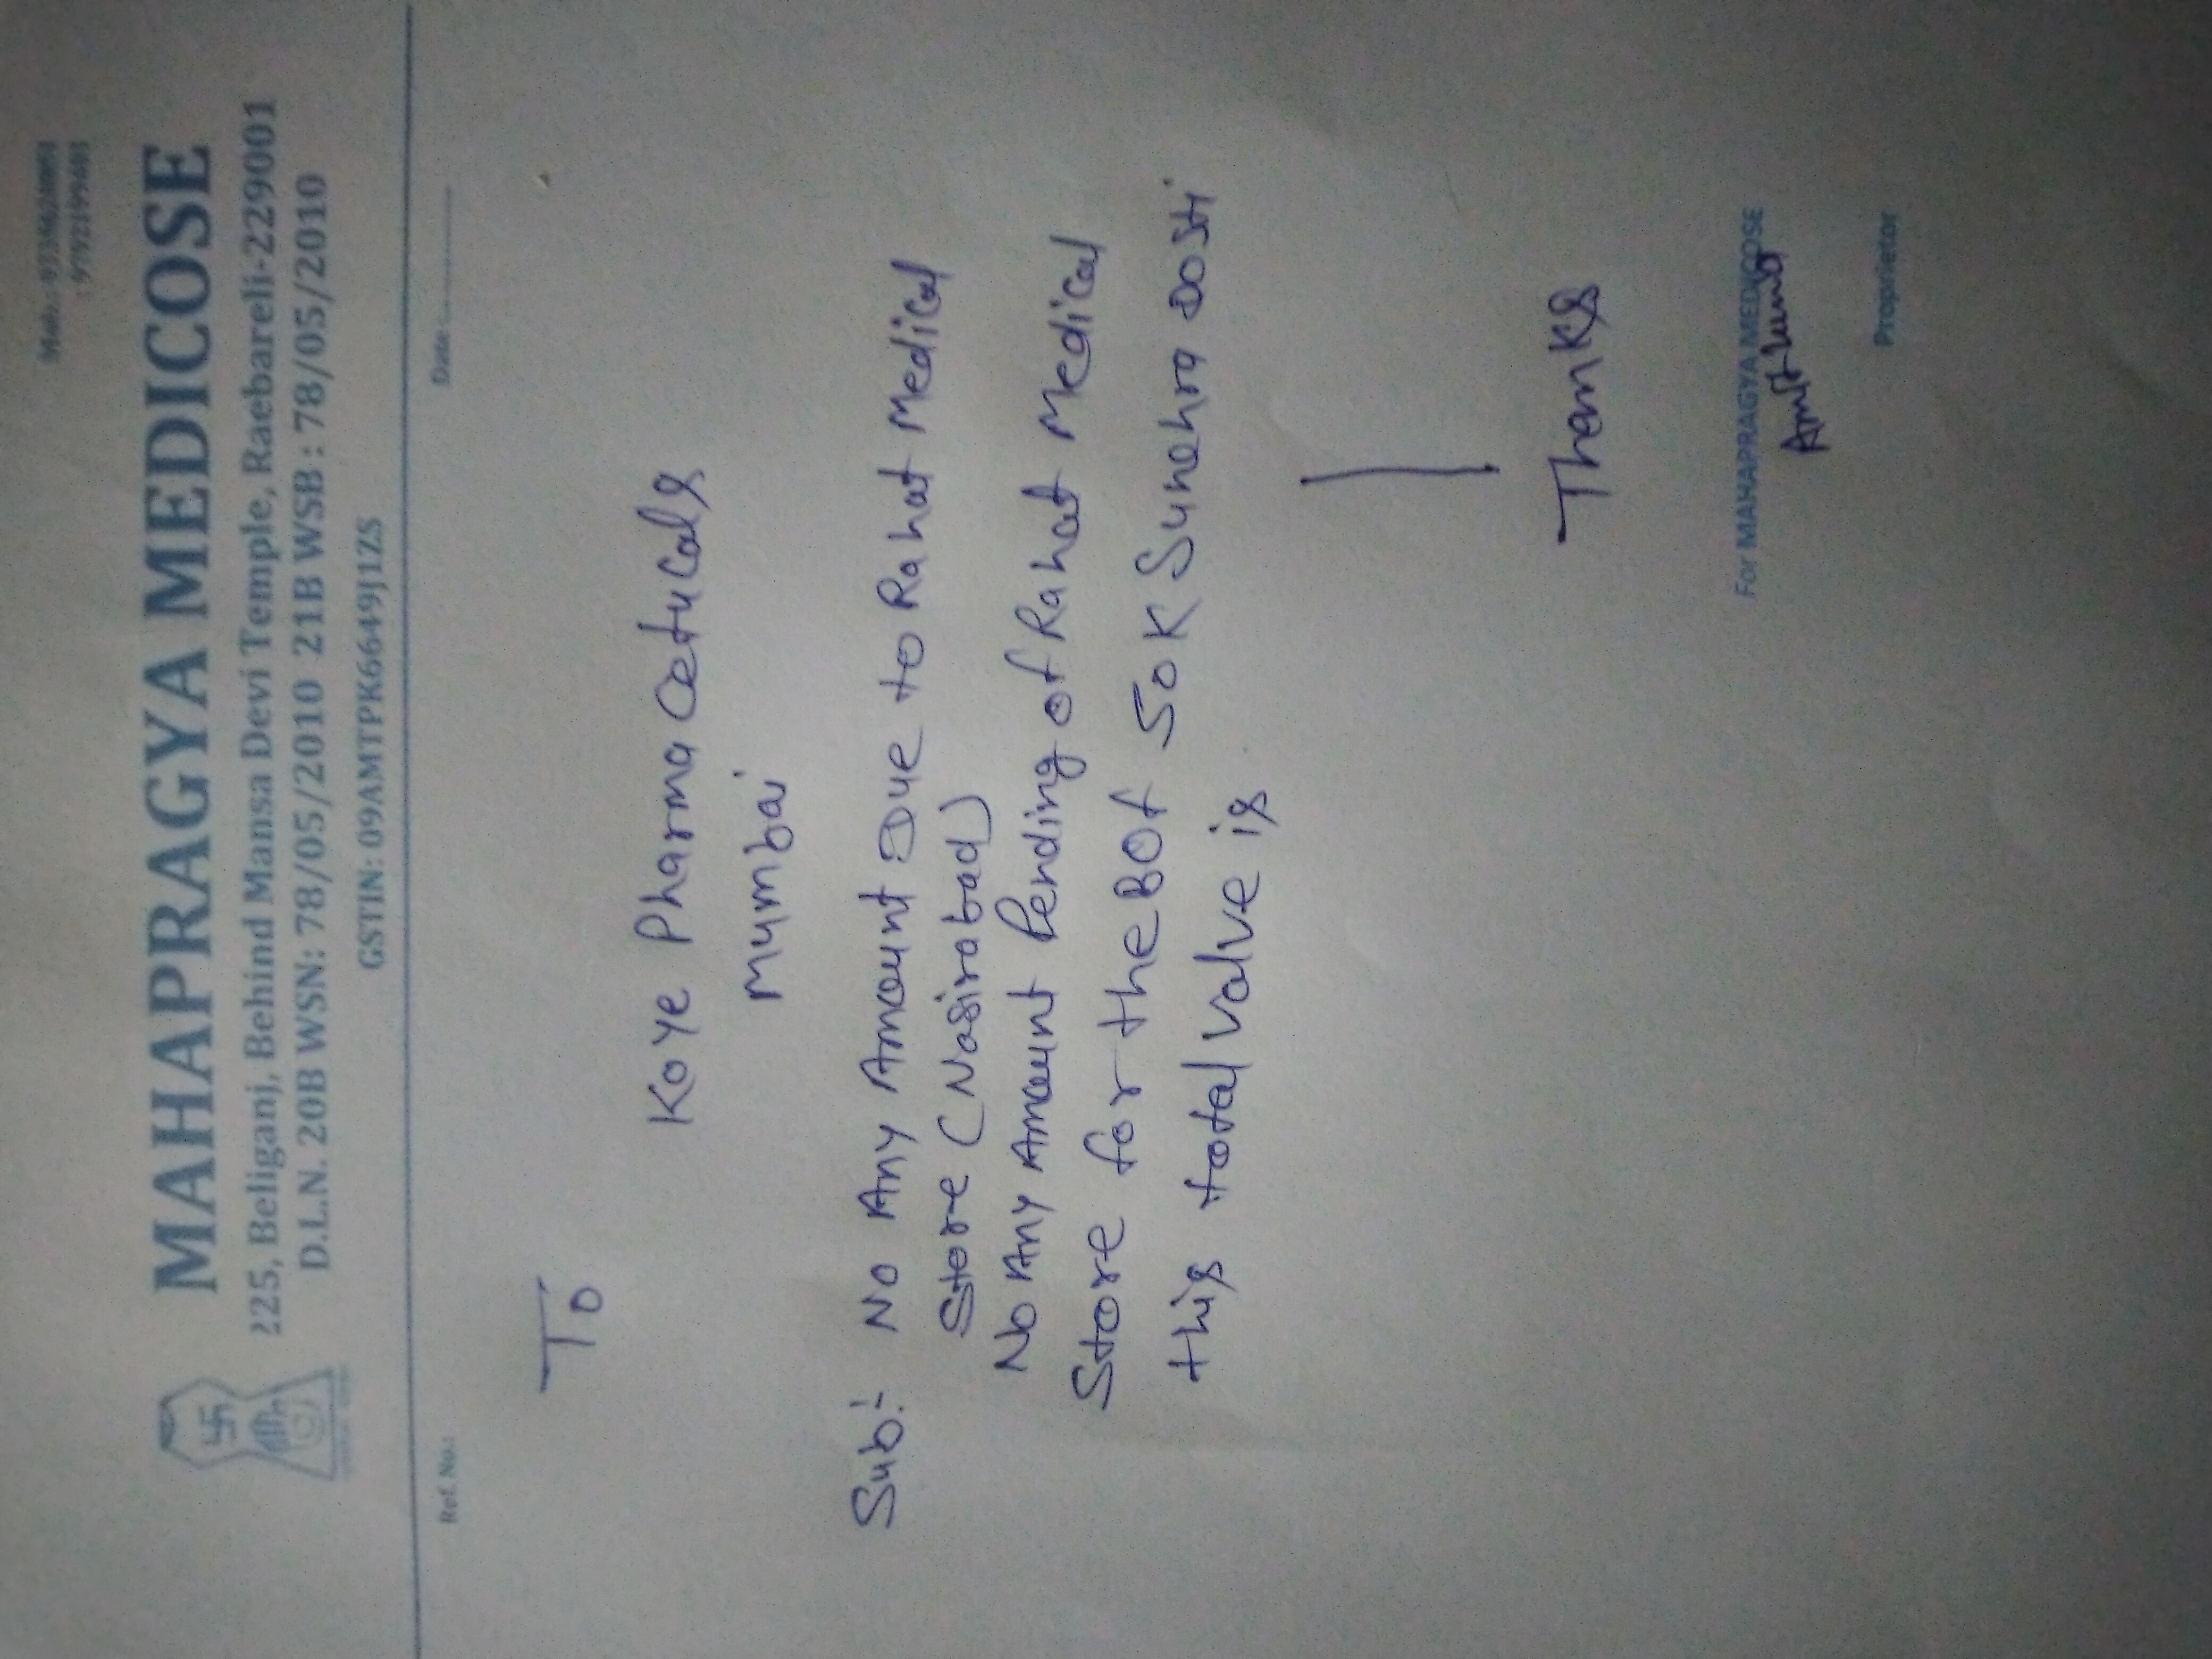 MAHAPRAGYA MEDICOSE
225, Beliganj, Behind Mansa Devi Temple, Raebareli-229001
D.L.N. 20B WSN: 78/05/2010 21B WSB : 78/05/2010
GSTIN: 09AMTPK6649J1ZS
Ref. No.:
Date :
To
Koye Pharma Cetucals
Mumbai
Sub:- No Any Amount Due to Rahat Medical
Store (Nasirabad)
No Any Amount Pending of Rahat Medical
Store for the BOf 50K Sunehra Dosti
this total valve is
Thanks
For MAHAPRAGYA MEDICOSE
Proprietor